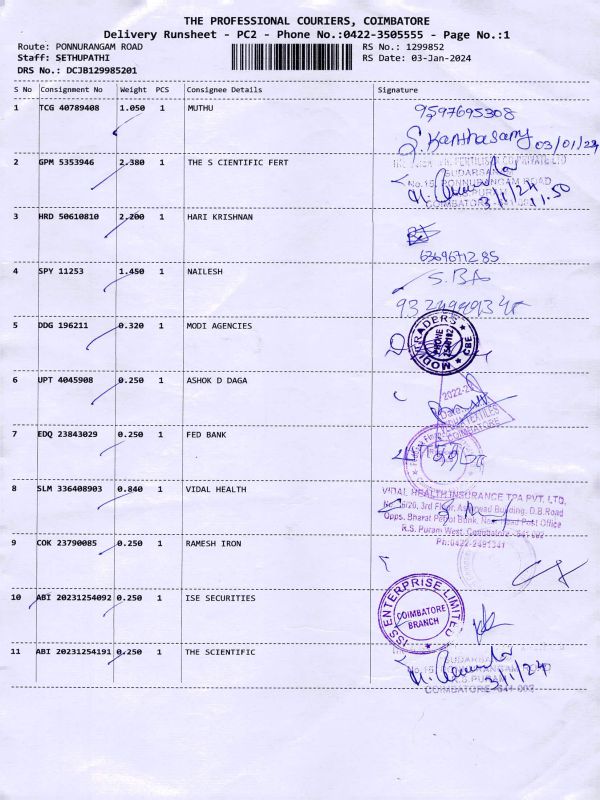 THE PROFESSIONAL COURIERS, COIMBATORE
Delivery Runsheet - PC2 - Phone No.:0422-3505555 - Page No.:1
Route: PONNURANGAM ROAD
RS No.: 1299852
Staff: SETHUPATHI
RS Date: 03-Jan-2024
DRS No.: DCJB129985201
S No Consignment No Weight PCS Consignee Details Signature
1 TCG 40789408 1.050 1 MUTHU
9597695308
S. Kanthasamy 03/01/24
2 GPM 5353946 2.380 1 THE S CIENTIFIC FERT
SUDARSAN
No.16, PONNURANGAM ROAD
COIMBATORE
3/1/24
11.50
3 HRD 50610810 2.200 1 HARI KRISHNAN
6369671285
4 SPY 11253 1.450 1 NAILESH
S.BA
5 DDG 196211 0.320 1 MODI AGENCIES
MODI TRADERS
PHONE
CBE
6 UPT 4045908 0.250 1 ASHOK D DAGA
2022-23
Date
TEXTILES
COIMBATORE
7 EDQ 23843029 0.250 1 FED BANK
8 SLM 336408903 0.840 1 VIDAL HEALTH
VIDAL HEALTH INSURANCE TPA PVT. LTD.
3rd Floor, Building, D.B.Road
Opps. Bharat Petrol Bunk, Near Head Post Office
R.S. Puram West, Coimbatore - 641 002
Ph:0422-2491341
9 COK 23790085 0.250 1 RAMESH IRON
10 ABI 20231254092 0.250 1 ISE SECURITIES
ISS ENTERPRISE LIMITED
COIMBATORE
BRANCH
11 ABI 20231254191 0.250 1 THE SCIENTIFIC
SUDARSAN
No.16, PONNURANGAM ROAD
R.S. PURAM
COIMBATORE - 641 002
3/1/24